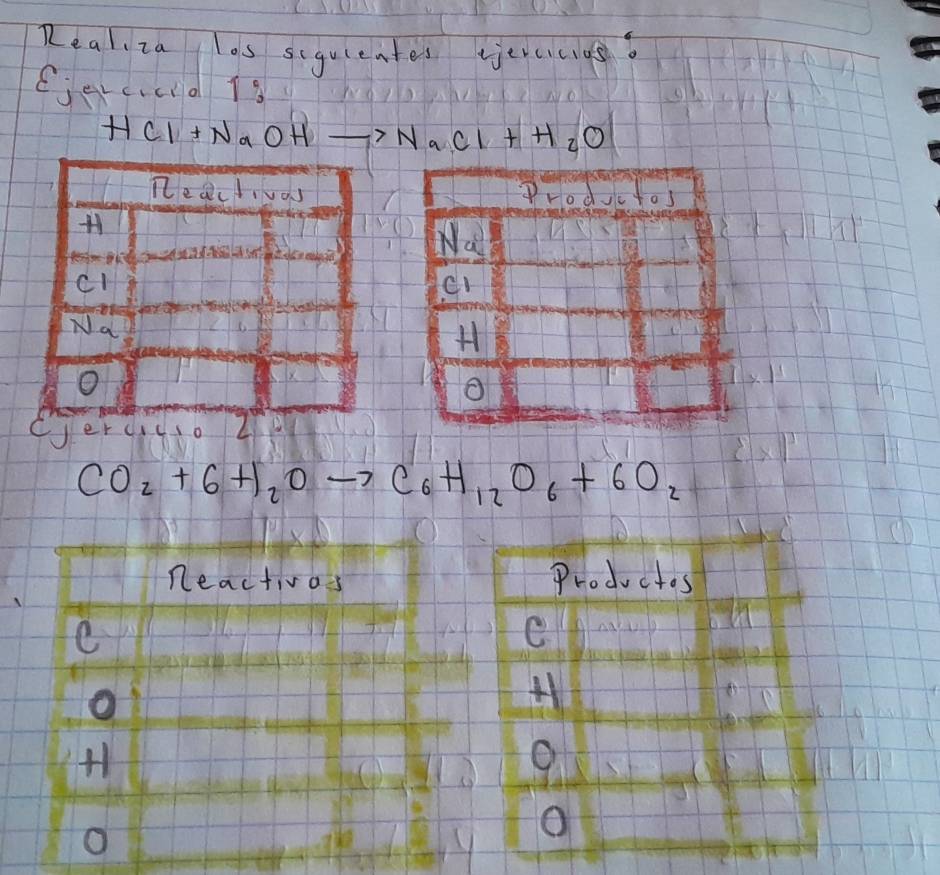 Realiza los siguientes ejercicios:
Ejercicio 1:
HCl + NaOH → NaCl + H₂O
Reactivos Productos
H Na
Cl Cl
Na H
O O
Ejercicio 2:
CO₂ + 6H₂O → C₆H₁₂O₆ + 6O₂
Reactivos Productos
C C
O H
H O
O O